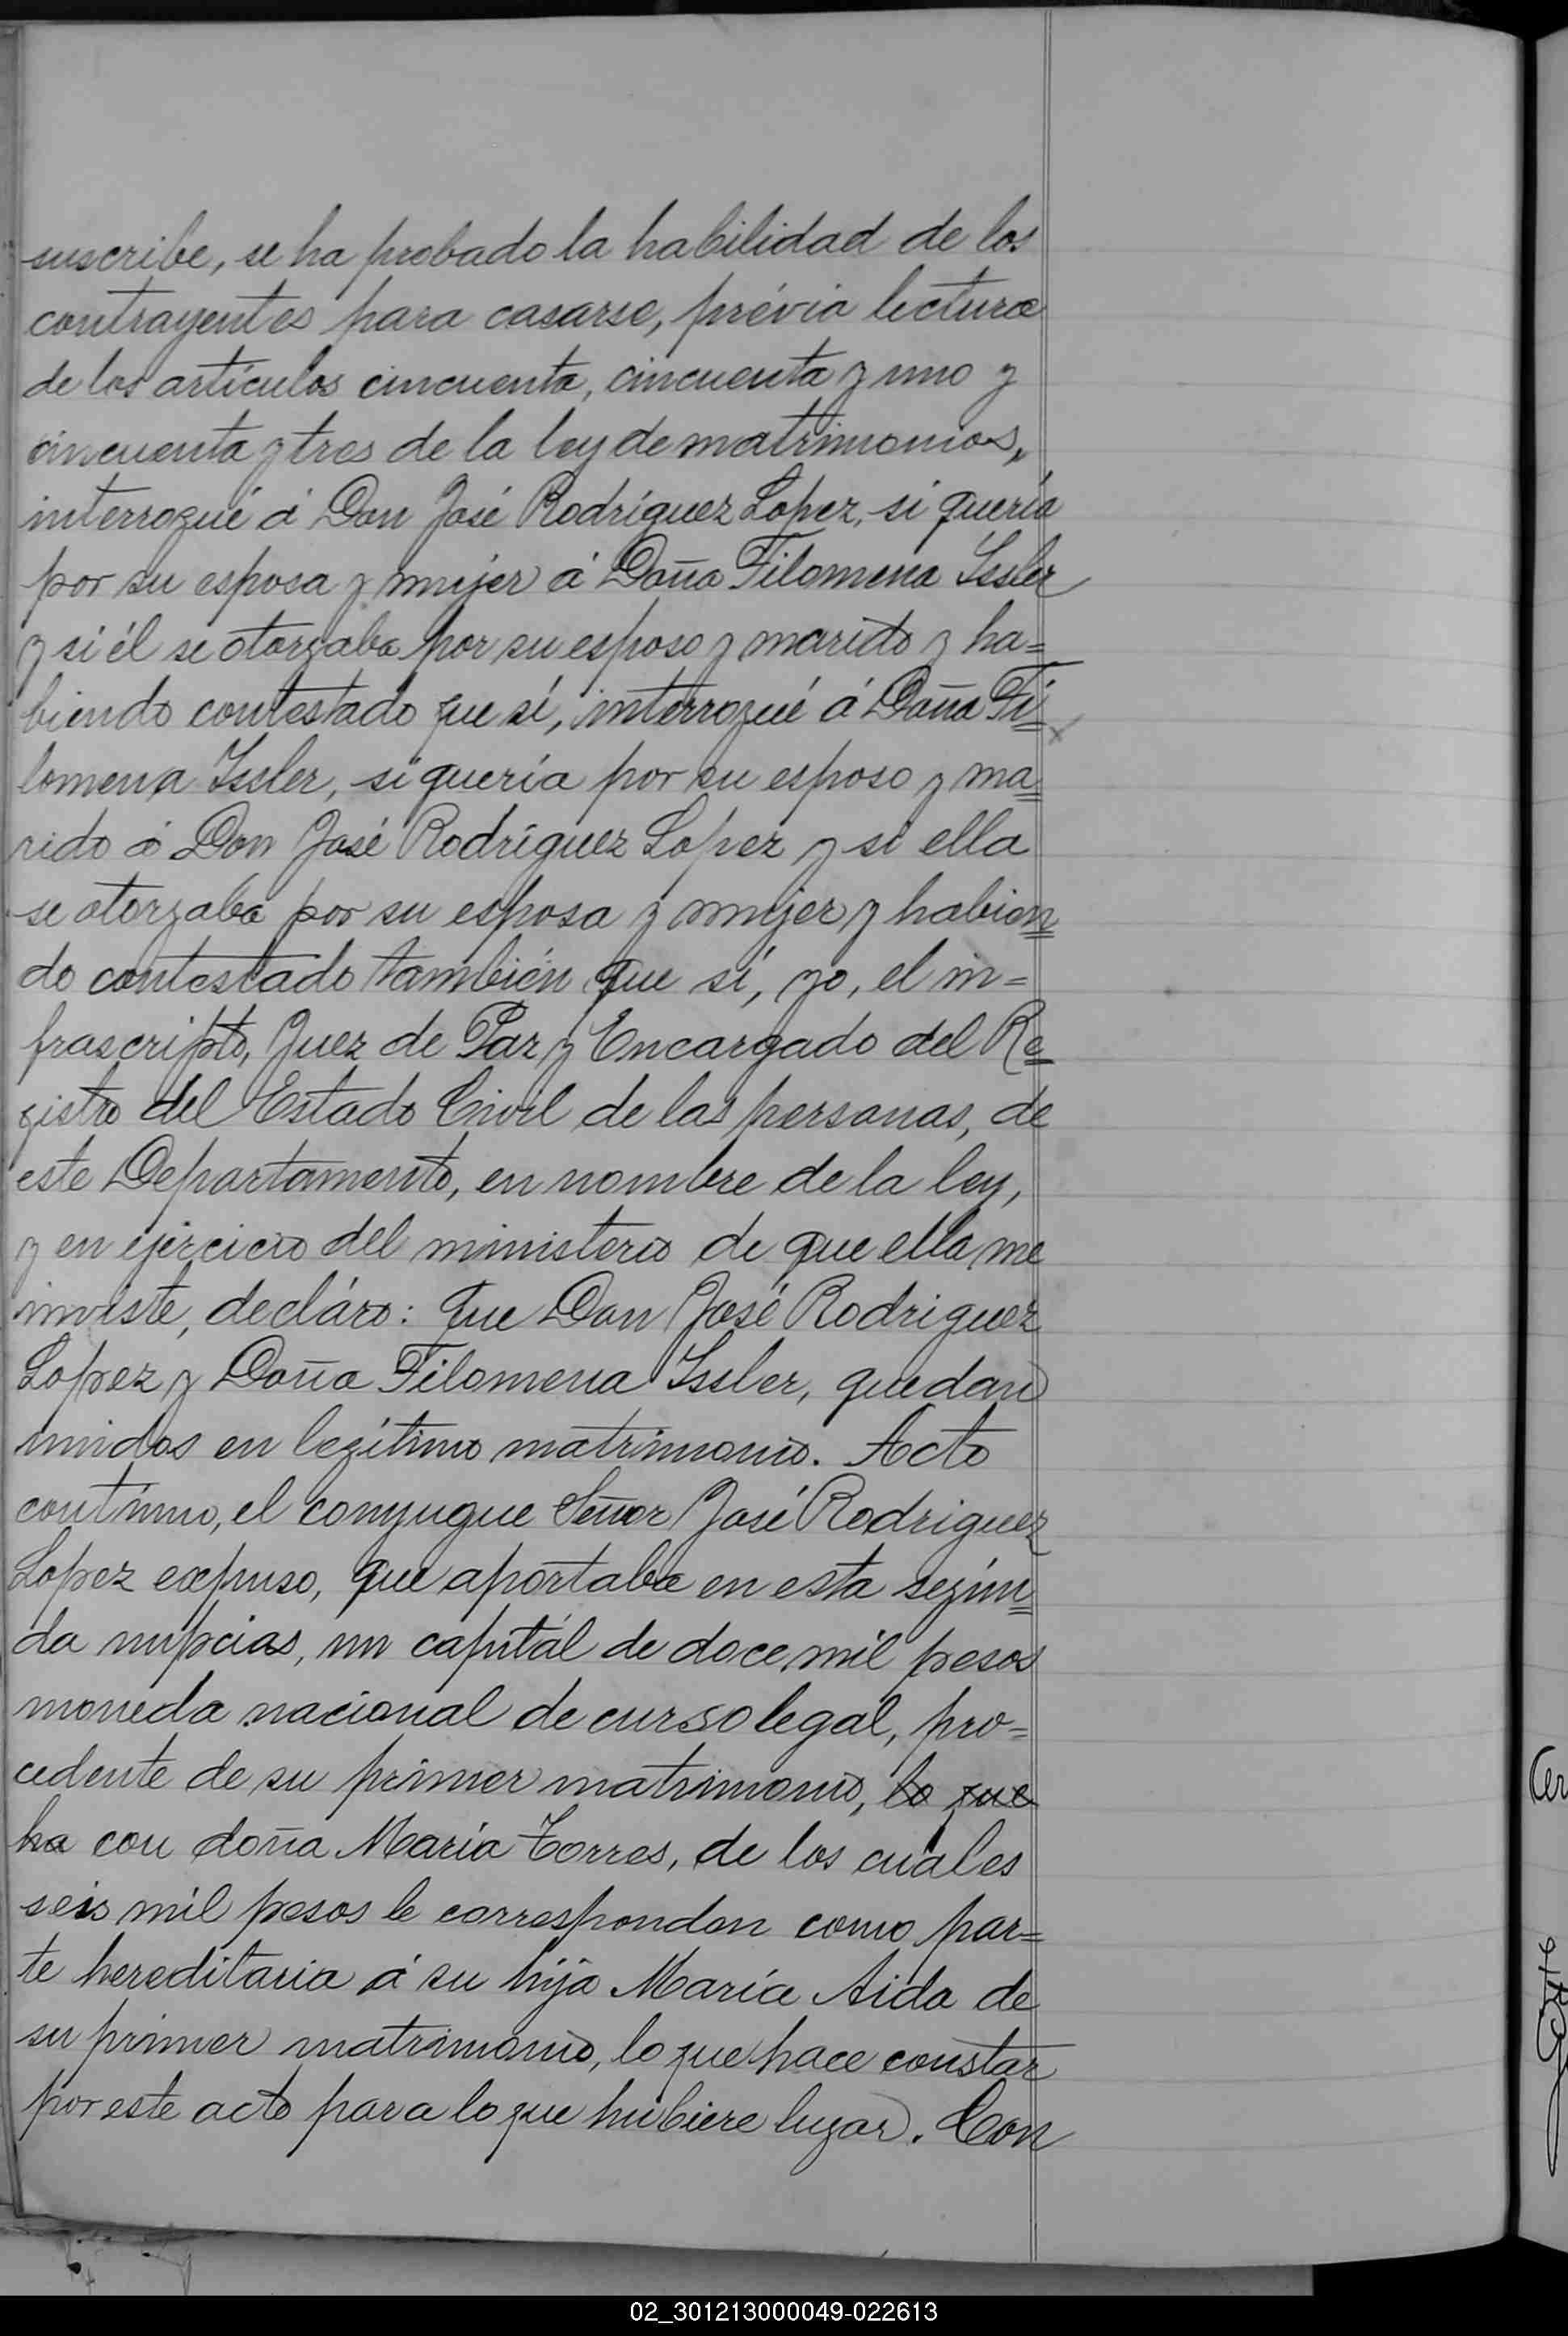 suscribe, se ha probado la habilidad de los
contrayentes para casarse, prévia lectura
de los artículos cincuenta, cincuenta y uno y
cincuenta y tres de la ley de matrimonios,
interrogué á Don José Rodríguez Lopez, si quería
por su esposa y mujer á Doña Filomena Issler
y si él se otorgaba por su esposo y marido y ha=
biendo contestado que sí, interrogué á Doña Fi=
lomena Issler, si quería por su esposo y ma=
rido á Don José Rodríguez Lopez y si ella
se otorgaba por su esposa y mujer y habien=
do contestado también que sí, yo, el in=
frascripto, Juez de Paz y Encargado del Re=
gistro del Estado Civil de las personas, de
este Departamento, en nombre de la ley,
y en ejercicio del ministerio de que ella me
inviste, decláro: que Don José Rodriguez
Lopez y Doña Filomena Issler, quedan
unidos en legítimo matrimonio. Acto
contínuo, el conyugue Señor José Rodriguez
Lopez expuso, que aportaba en esta segun=
da nupcias, un capitál de doce mil pesos
moneda nacional de curso legal, pro=
cedente de su primer matrimonio, lo que
ha con doña María Torres, de los cuales
seis mil pesos le corresponden como par=
te hereditaria á su hija María Aida de
su primer matrimonio, lo que hace constar
por este acto para lo que hubiere lugar. Con
02_301213000049-022613